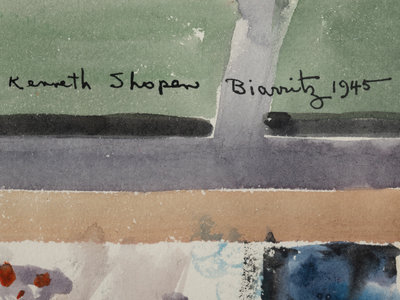 Kenneth Shopen Biarritz 1945